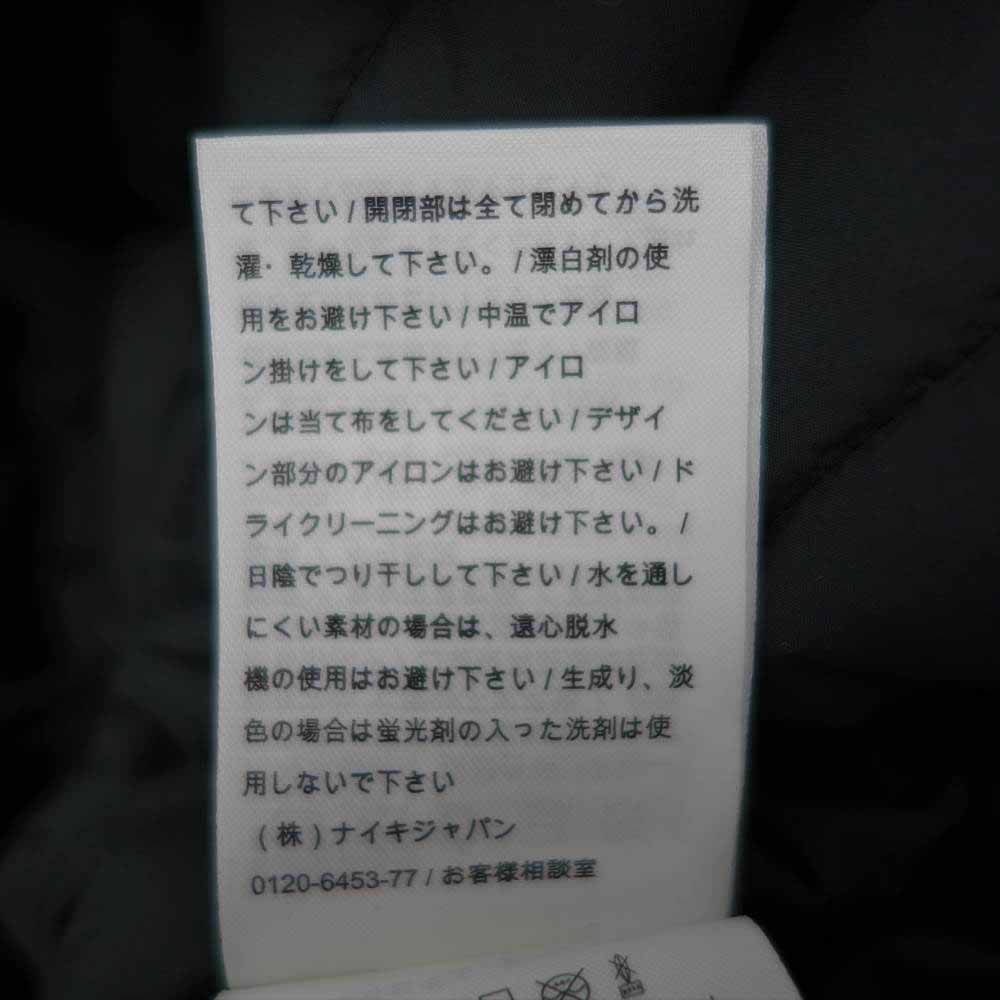 て下さい / 開閉部は全て閉めてから洗
濯・乾燥して下さい。 / 漂白剤の使
用をお避け下さい / 中温でアイロ
ン掛けをして下さい / アイロ
ンは当て布をしてください / デザイ
ン部分のアイロンはお避け下さい / ド
ライクリーニングはお避け下さい。 /
日陰でつり干しして下さい / 水を通し
にくい素材の場合は、遠心脱水
機の使用はお避け下さい / 生成り、淡
色の場合は蛍光剤の入った洗剤は使
用しないで下さい
(株)ナイキジャパン
0120-6453-77 / お客様相談室